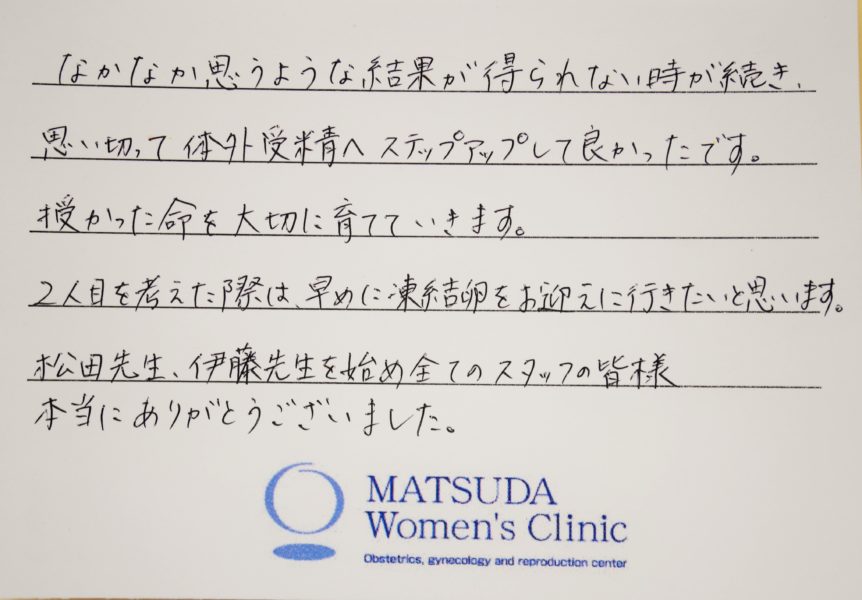 なかなか思うような結果が得られない時が続き、
思い切って体外受精へステップアップして良かったです。
授かった命を大切に育てていきます。
2人目を考えた際は、早めに凍結卵をお迎えに行きたいと思います。
松田先生、伊藤先生を始め全てのスタッフの皆様
本当にありがとうございました。
MATSUDA
Women's Clinic
Obstetrics, gynecology and reproduction center